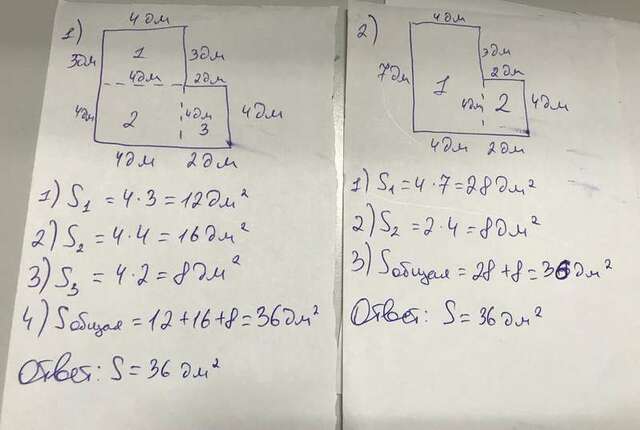 1)
4дм
3дм
1
3дм
4дм
2дм
4дм
2
4дм
3
4дм
4дм
2дм
1) S₁ = 4·3 = 12дм²
2) S₂ = 4·4 = 16дм²
3) S₃ = 4·2 = 8дм²
4) Sобщая = 12+16+8 = 36дм²
Ответ: S = 36 дм²
2)
4дм
3дм
7дм
1
2дм
4дм
2
4дм
4дм
2дм
1) S₁ = 4·7 = 28дм²
2) S₂ = 2·4 = 8дм²
3) Sобщая = 28+8 = 36дм²
Ответ: S = 36дм²